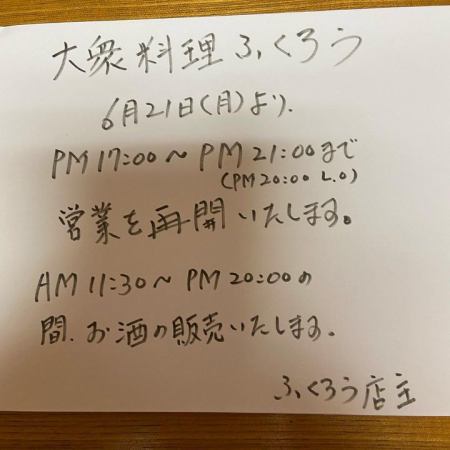 大衆料理ふくろう
6月21日(月)より.
PM17:00〜PM21:00まで
(PM20:00 L.O)
営業を再開いたします。
AM11:30〜PM20:00の
間.お酒の販売いたします.
ふくろう店主